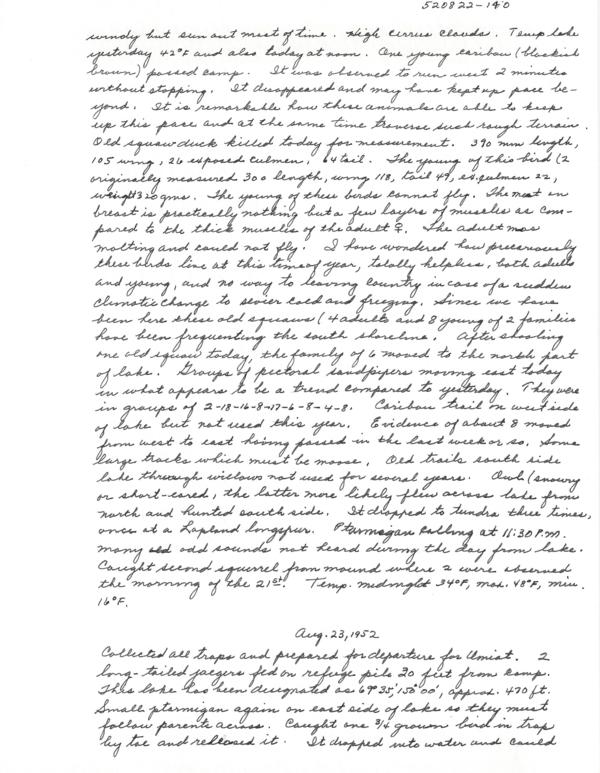 520822-140
windy but sun out most of time. High Cirrus Clouds. Temp lake
yesterday 42°F and also today at noon. One young caribou (blackish
brown) passed camp. It was observed to run west 2 minutes
without stopping. It disappeared and may have kept up pace be-
yond. It is remarkable how these animals are able to keep
up this pace and at the same time traverse such rough terrain.
Old squaw duck killed today for measurement. 390 mm length,
105 wing, 26 exposed culmen, 64 tail. The young of this bird (2
originally measured 300 length, wing 118, tail 49, ex. culmen 22,
weight 320 gms. The young of these birds cannot fly. The meat on
breast is practically nothing but a few layers of muscles as com-
pared to the thick muscles of the adult ♀. The adult was
molting and could not fly. I have wondered how precariously
these birds live at this time of year, totally helpless, both adults
and young, and no way to leaving country in case of a sudden
climatic change to sevier cold and freezing. Since we have
been here these old squaws (4 adults and 8 young of 2 families
have been frequenting the south shoreline. After shooting
one old squaw today, the family of 6 moved to the north part
of lake. Groups of pectoral sandpipers moving east today
in what appears to be a trend compared to yesterday. They were
in groups of 2-18-16-8-17-6-8-4-8. Caribou trail on west side
of lake but not used this year. Evidence of about 8 moved
from west to east having passed in the last week or so. Some
large tracks which must be moose. Old trails south side
lake through willows not used for several years. Owl (snowy
or short-eared, the latter more likely flew across lake from
north and hunted south side. It dropped to tundra three times,
once at a Lapland longspur. Ptarmigan calling at 11:30 P.M.
Many odd sounds not heard during the day from lake.
Caught second squirrel from mound where 2 were observed
the morning of the 21st. Temp. midnight 34°F, max. 48°F, min.
16°F.
Aug. 23, 1952
Collected all traps and prepared for departure for Umiat. 2
long-tailed jaegers fed on refuge pile 20 feet from camp.
This lake has been designated as 69°35', 150°00', approx. 470 ft.
Small ptarmigan again on east side of lake so they must
follow parent across. Caught one 3/4 grown bird in trap
by toe and released it. It dropped into water and could